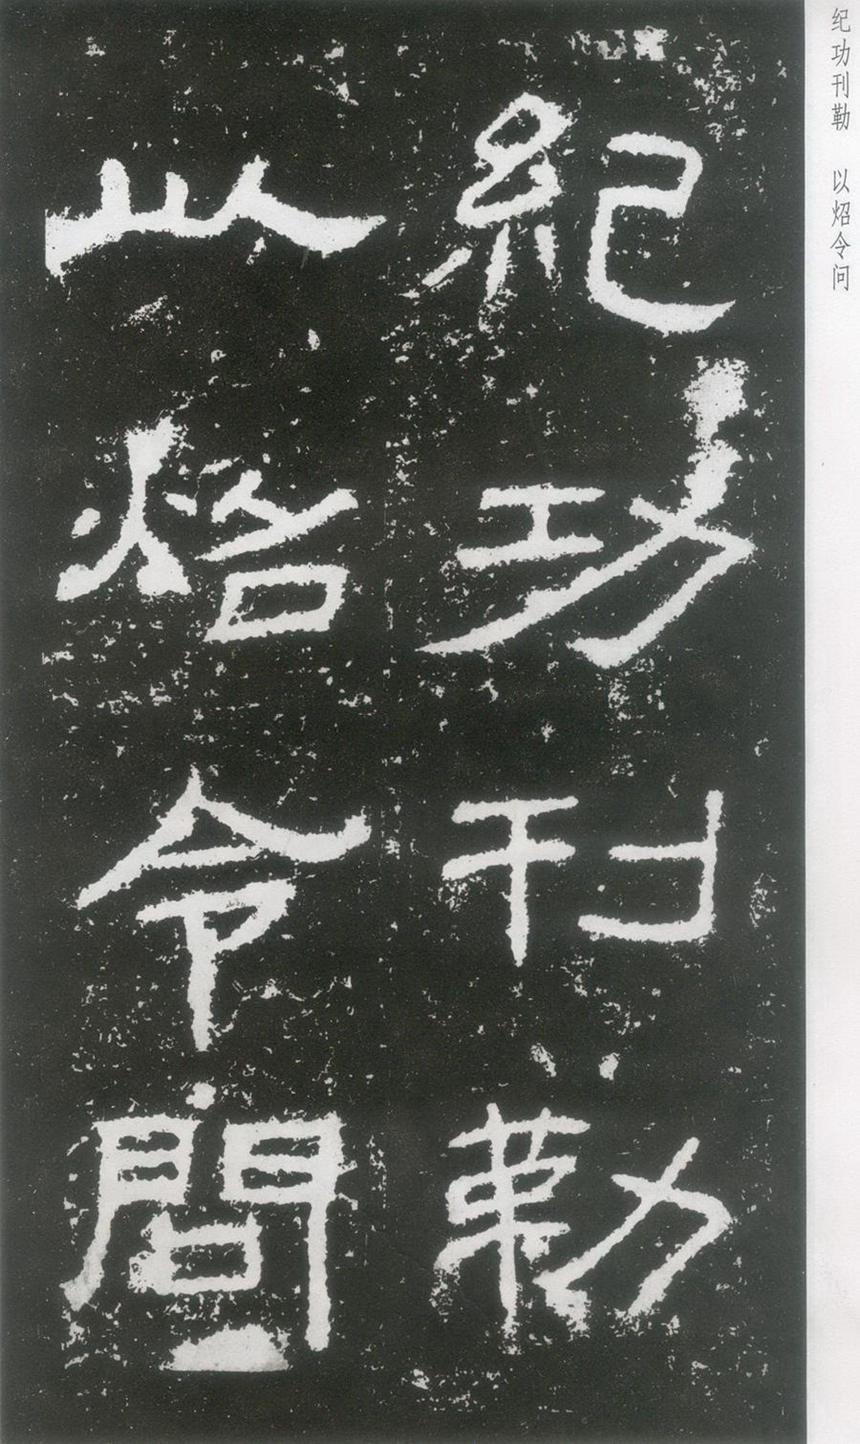 紀功刊勒
以炤令問
纪功刊勒 以炤令问